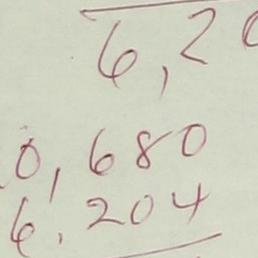 6,20
0,680
6,204